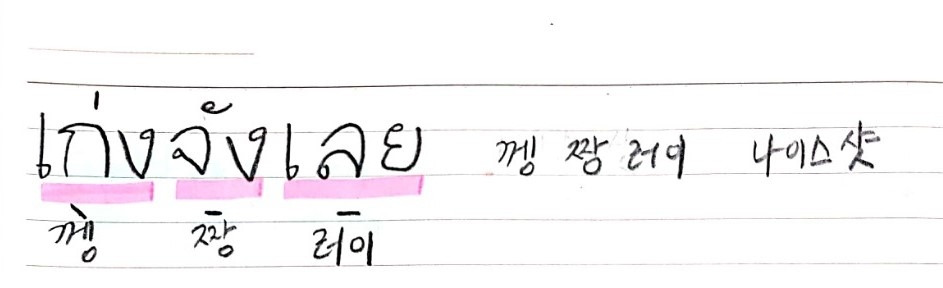 เก่งจังเลย 껭 짱 러이 나이스 샷
껭 짱 러이